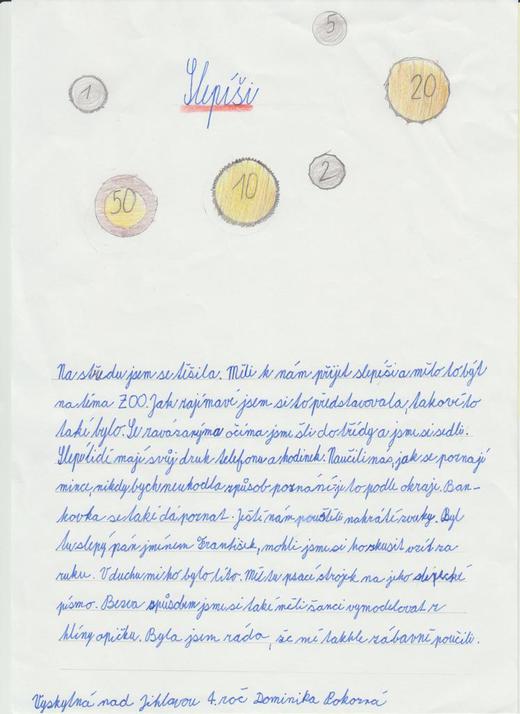 5
1
Slepíši
20
50
10
2
Na středu jsem se těšila. Měli k nám přijet slepíši a mělo to být
na téma ZOO. Jak zajímavé jsem si to představovala, takové to
také bylo. Se zavázanýma očima jsme šli do třídy a jsme si sedli.
Slepí lidi mají svůj druk telefonu a hodinek. Naučili nás, jak se poznají
mince, nikdy bych neuhodla způsob poznání je to podle okraje. Ban-
kovka se také dá poznat. Ještě nám pouštěli nakráté zvuky. Byl
tu slepý pán jménem František, mohli jsme si ho zkusit vzít za
ruku. V duchu mi ho bylo líto. Měl tu psací strojek na jeho slepecké
písmo. způsobem jsme si také měli šanci vymodelovat z
hlíny opičku. Byla jsem ráda, že mě takhle zábavně poučili.
Vyskytná nad Jihlavou 4. roč Dominika Pokorná